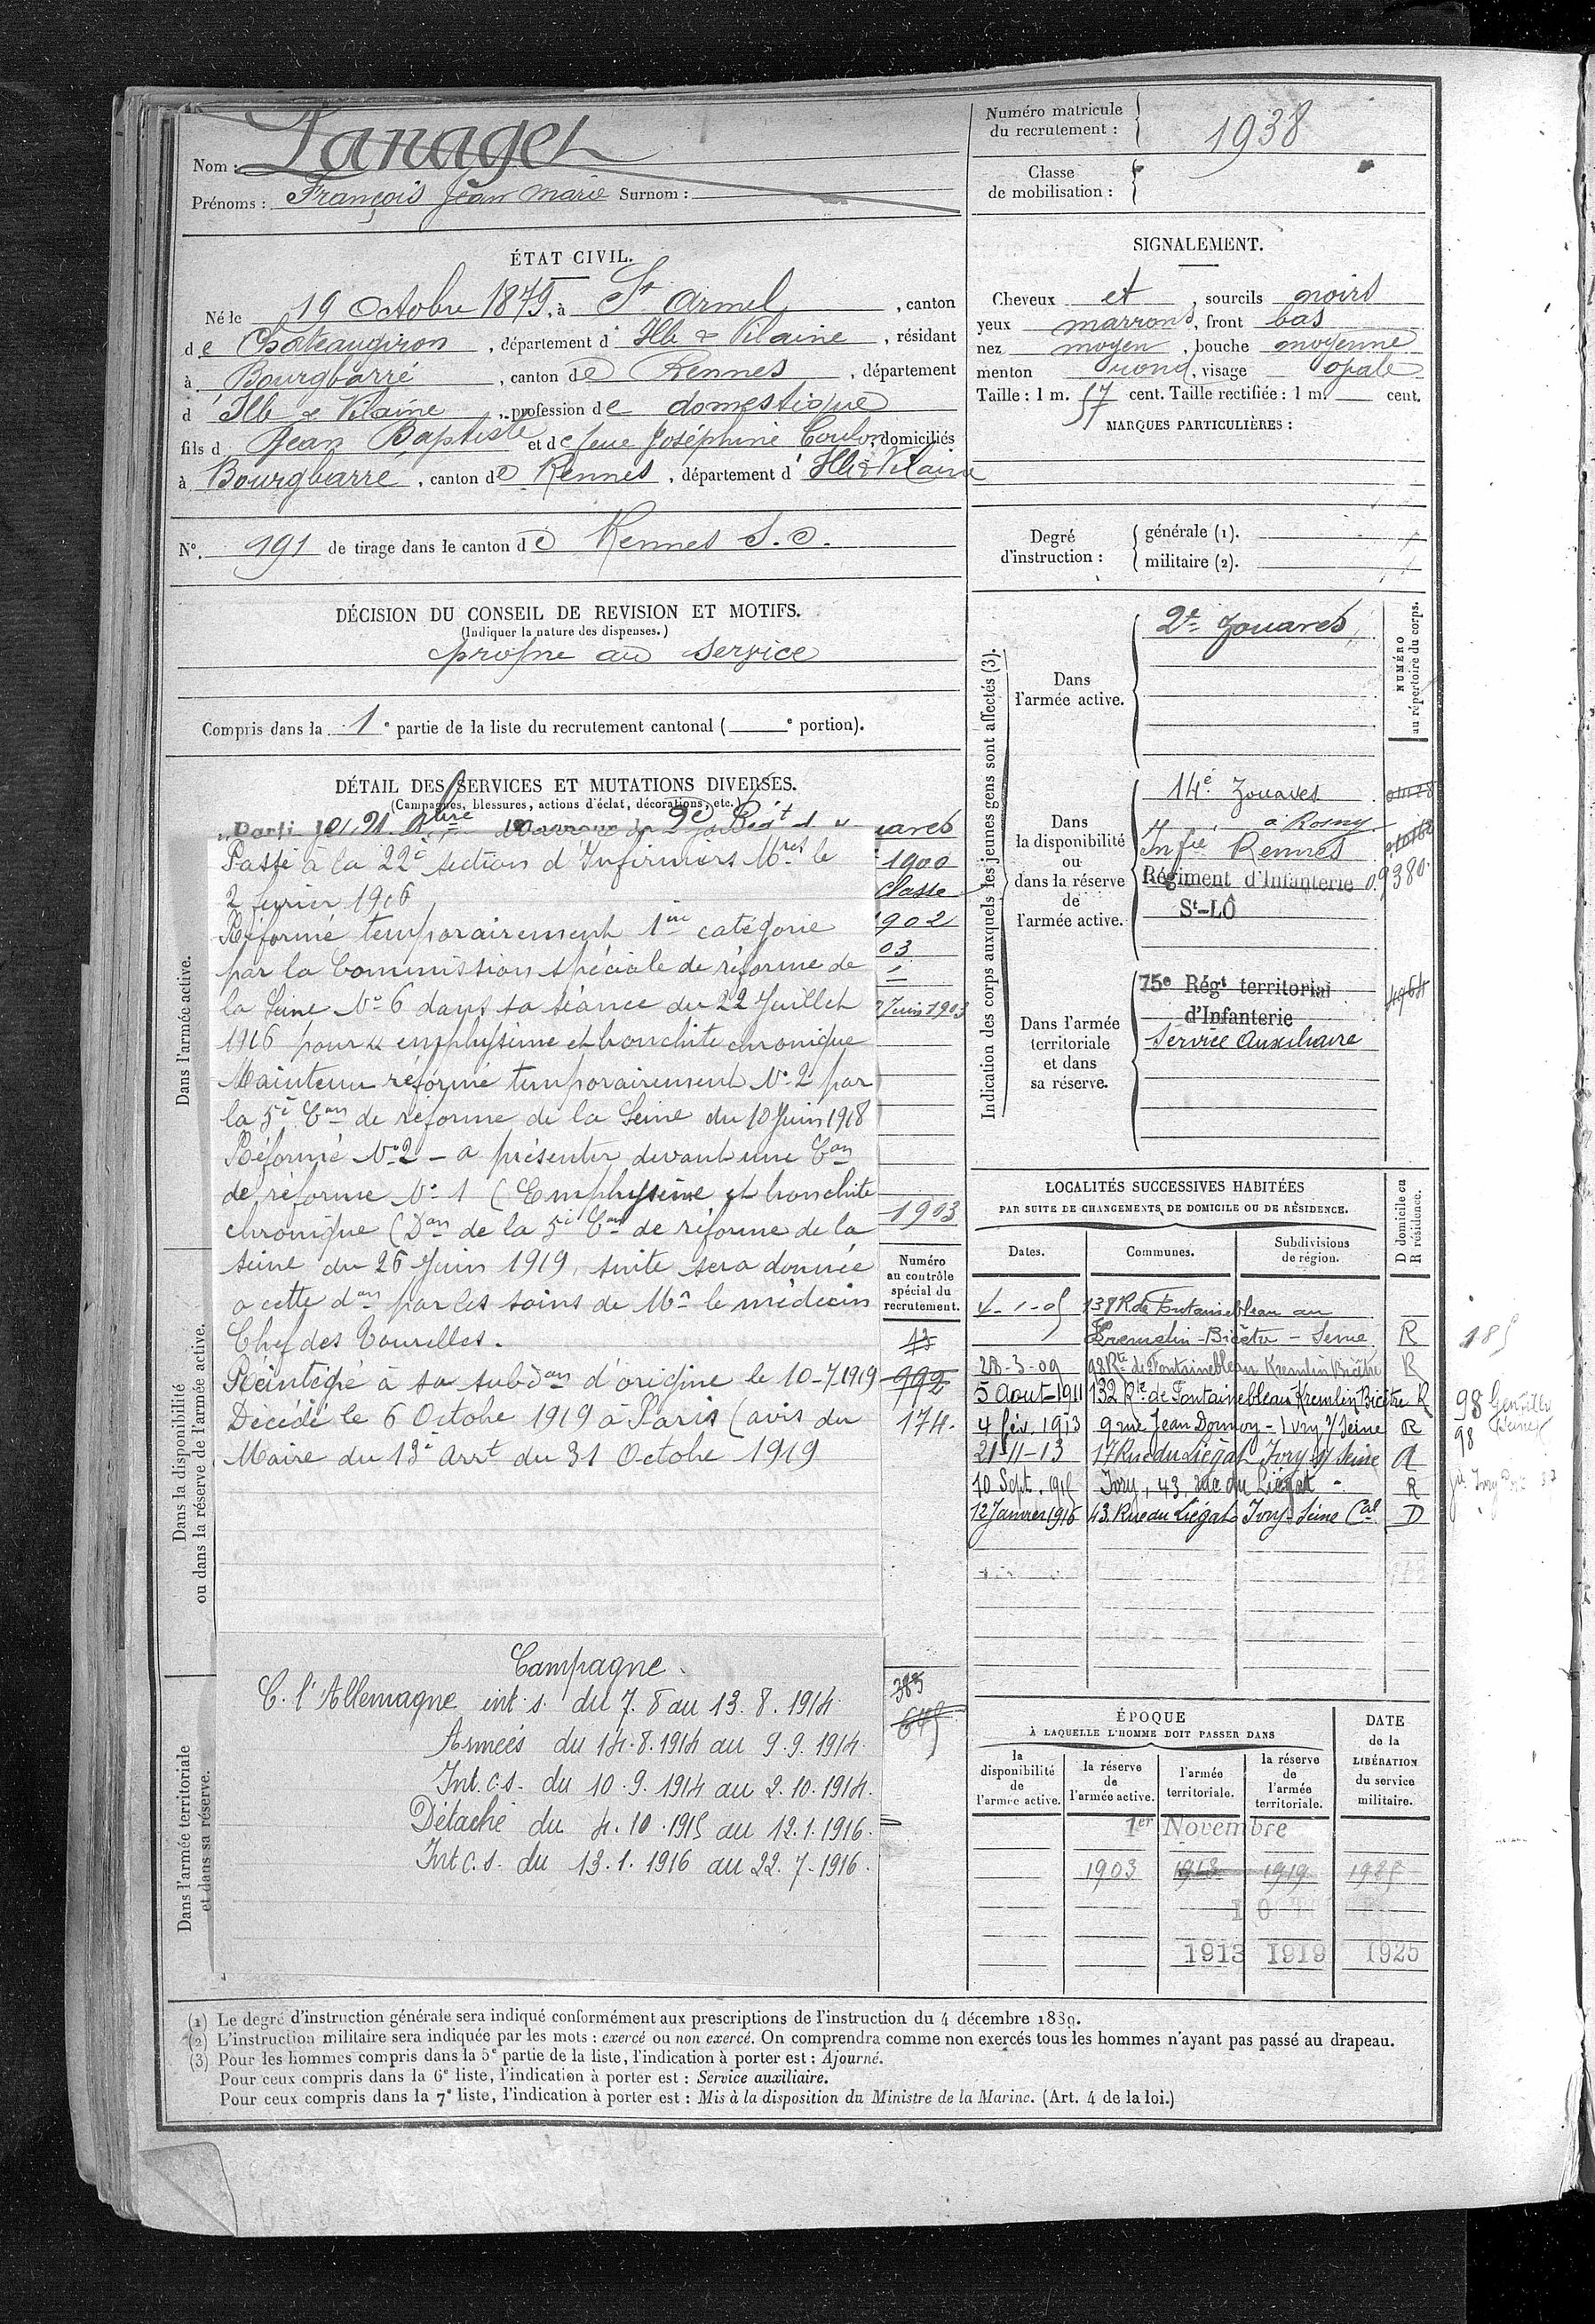 Nom : Lanagel
Prénoms : François Jean Marie Surnom :
ÉTAT CIVIL.
Né le 19 Octobre 1879, à St Armel, canton
de Châteaugiron, département d'Ille & Vilaine, résidant
à Bourgbarré, canton de Rennes, département
d'Ille & Vilaine, profession de domestique
fils d Jean Baptiste et de feue Joséphine Coulon, domiciliés
à Bourgbarré, canton de Rennes, département d'Ille & Vilaine
N°. 191 de tirage dans le canton de Rennes S.O.
DÉCISION DU CONSEIL DE REVISION ET MOTIFS.
(Indiquer la nature des dispenses.)
propre au service
Compris dans la 1e partie de la liste du recrutement cantonal ( e portion).
DÉTAIL DES SERVICES ET MUTATIONS DIVERSES.
(Campagnes, blessures, actions d'éclat, décorations, etc.)
uaves
Passé à la 22è section d'Infirmiers Mres le
1900
2 février 1916
classe
Réformé temporairement 1ère catégorie
1902
par la Commission spéciale de réforme de
03
la Seine No 6 dans sa séance du 22 Juillet
Juin 1903
1916 pour « emphysème et bronchite chronique
Maintenu réformé temporairement No 2 par
la 5è Con de réforme de la Seine du 10 Juin 1918
Réformé No 2 - a présenter devant une Con
de réforme No 1 (Emphysème et bronchite
1903
chronique (Don de la 5è Con de réforme de la
seine du 26 Juin 1919, suite sera donnée
a cette don par les soins de Mr le médecin
Chef des Tourelles.
Réintégré à sa subdon d'origine le 10-7-1919
Décédé le 6 Octobre 1919 à Paris (avis du
Maire du 13è Arrt du 31 Octobre 1919
Numéro
au contrôle
spécial du
recrutement.
13
992
174.
Campagne.
C. l'Allemagne int. s. du 7.8 au 13.8.1914
Armées du 14.8.1914 au 9.9.1914
Int. c.s. du 10.9.1914 au 2.10.1914.
Détaché du 4.10.1915 au 12.1.1916.
Int c.s. du 13.1.1916 au 22.7-1916.
383
Dans l'armée active.
Dans la disponibilité
ou dans la réserve de l'armée active.
Dans l'armée territoriale
et dans sa réserve.
Numéro matricule
du recrutement : 1938
Classe
de mobilisation :
SIGNALEMENT.
Cheveux et, sourcils noirs
yeux marrons, front bas
nez moyen, bouche moyenne
menton rond, visage opale
Taille : 1 m. 57 cent. Taille rectifiée : 1 m. cent.
MARQUES PARTICULIÈRES :
Degré
d'instruction :
générale (1).
militaire (2).
Indication des corps auxquels les jeunes gens sont affectés (3).
NUMÉRO
au répertoire du corps.
Dans
l'armée active.
2e Zouaves
Dans
la disponibilité
ou
dans la réserve
de
l'armée active.
14è Zouaves
à Rosny
Infie Rennes
Régiment d'Infanterie 09380
St-LÔ
Dans l'armée
territoriale
et dans
sa réserve.
75e Régt territorial
d'Infanterie
4964
Service Auxiliaire
LOCALITÉS SUCCESSIVES HABITÉES
PAR SUITE DE CHANGEMENTS DE DOMICILE OU DE RÉSIDENCE.
Dates. Communes. Subdivisions de région. D domicile ou R résidence.
138 R. de Fontainebleau au
Kremelin-Bicêtre - Seine R
28-3-09 98 Rte de Fontainebleau Kremlin Bicêtre R
5 Aout-1911 132 Rte de Fontainebleau Kremlin Bicêtre R
4 fév. 1913 9 rue Jean Dormoy - Ivry s/ Seine R
21-11-13 17 Rue du Liégat Ivry s/ Seine R
10 Sept. 1915 Ivry, 43, rue du Liégat - R
12 Janvier 1916 43. Rue du Liégat Ivry-Seine Cal D
185
98 Gentilly
98
ÉPOQUE
À LAQUELLE L'HOMME DOIT PASSER DANS
DATE
de la
LIBÉRATION
du service
militaire.
la
disponibilité
de
l'armée active.
la réserve
de
l'armée active.
l'armée
territoriale.
la réserve
de
l'armée
territoriale.
1er Novembre
1903 1913 1919 1925
1913 1919 1925
(1) Le degré d'instruction générale sera indiqué conformément aux prescriptions de l'instruction du 4 décembre 1889.
(2) L'instruction militaire sera indiquée par les mots : exercé ou non exercé. On comprendra comme non exercés tous les hommes n'ayant pas passé au drapeau.
(3) Pour les hommes compris dans la 5e partie de la liste, l'indication à porter est : Ajourné.
Pour ceux compris dans la 6e liste, l'indication à porter est : Service auxiliaire.
Pour ceux compris dans la 7e liste, l'indication à porter est : Mis à la disposition du Ministre de la Marine. (Art. 4 de la loi.)